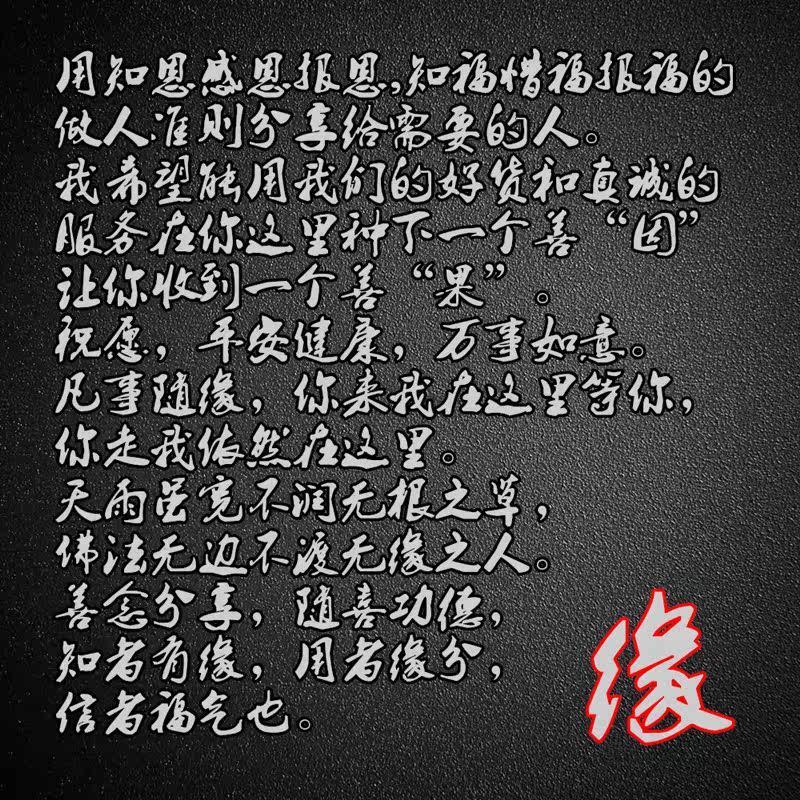 用知恩感恩报恩,知福惜福报福的
做人准则分享给需要的人。
我希望能用我们的好货和真诚的
服务在你这里种下一个善“因”
让你收到一个善“果”。
祝愿，平安健康，万事如意。
凡事随缘，你来我在这里等你，
你走我依然在这里。
天雨虽宽不润无根之草，
佛法无边不渡无缘之人。
善念分享，随喜功德，
知者有缘，用者缘分，
信者福气也。
缘